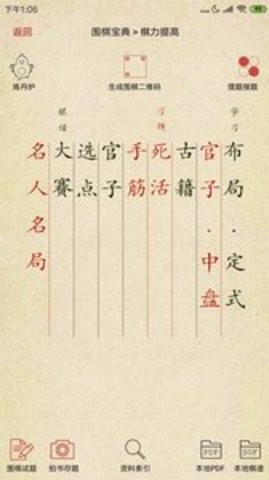 下午1:06
返回
围棋宝典 > 棋力提高
炼丹炉
生成围棋二维码
搜题搜题
学习
布局·定式
官子·中盘
古籍
习题
死活
手筋
官子
选点
棋谱
大賽
名人名局
围棋试题
拍书存题
资料索引
本地PDF
本地棋谱